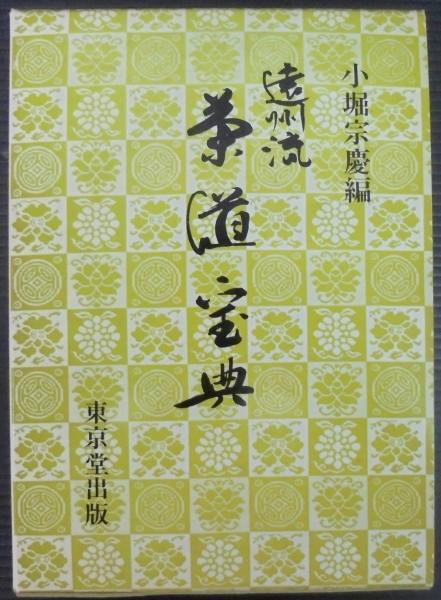 小堀宗慶編
遠州流
茶道宝典
東京堂出版